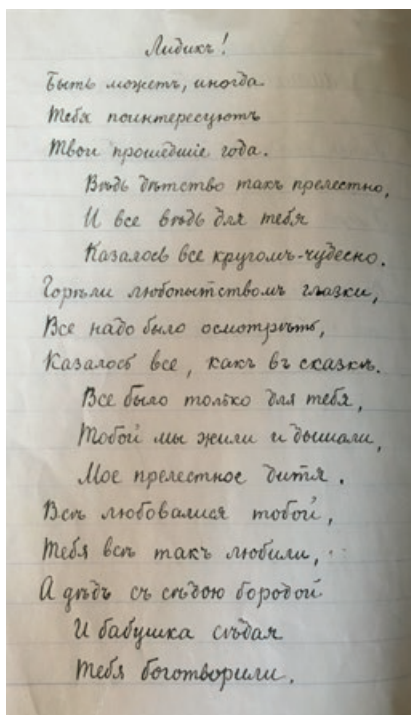 Лидикъ!
Быть можетъ, иногда
Тебя поинтересуютъ
Твои прошедшiе года.
Вѣдь дѣтство такъ прелестно,
И все вѣдь для тебя
Казалось все кругомъ-чудесно.
Горѣли любопытствомъ глазки,
Все надо было осмотрѣть,
Казалось все, какъ въ сказкѣ.
Все было только для тебя,
Тобой мы жили и дышали,
Мое прелестное дитя.
Всѣ любовалися тобой,
Тебя всѣ такъ любили,
А дѣдъ съ сѣдою бородой
И бабушка сѣдая
Тебя боготворили.